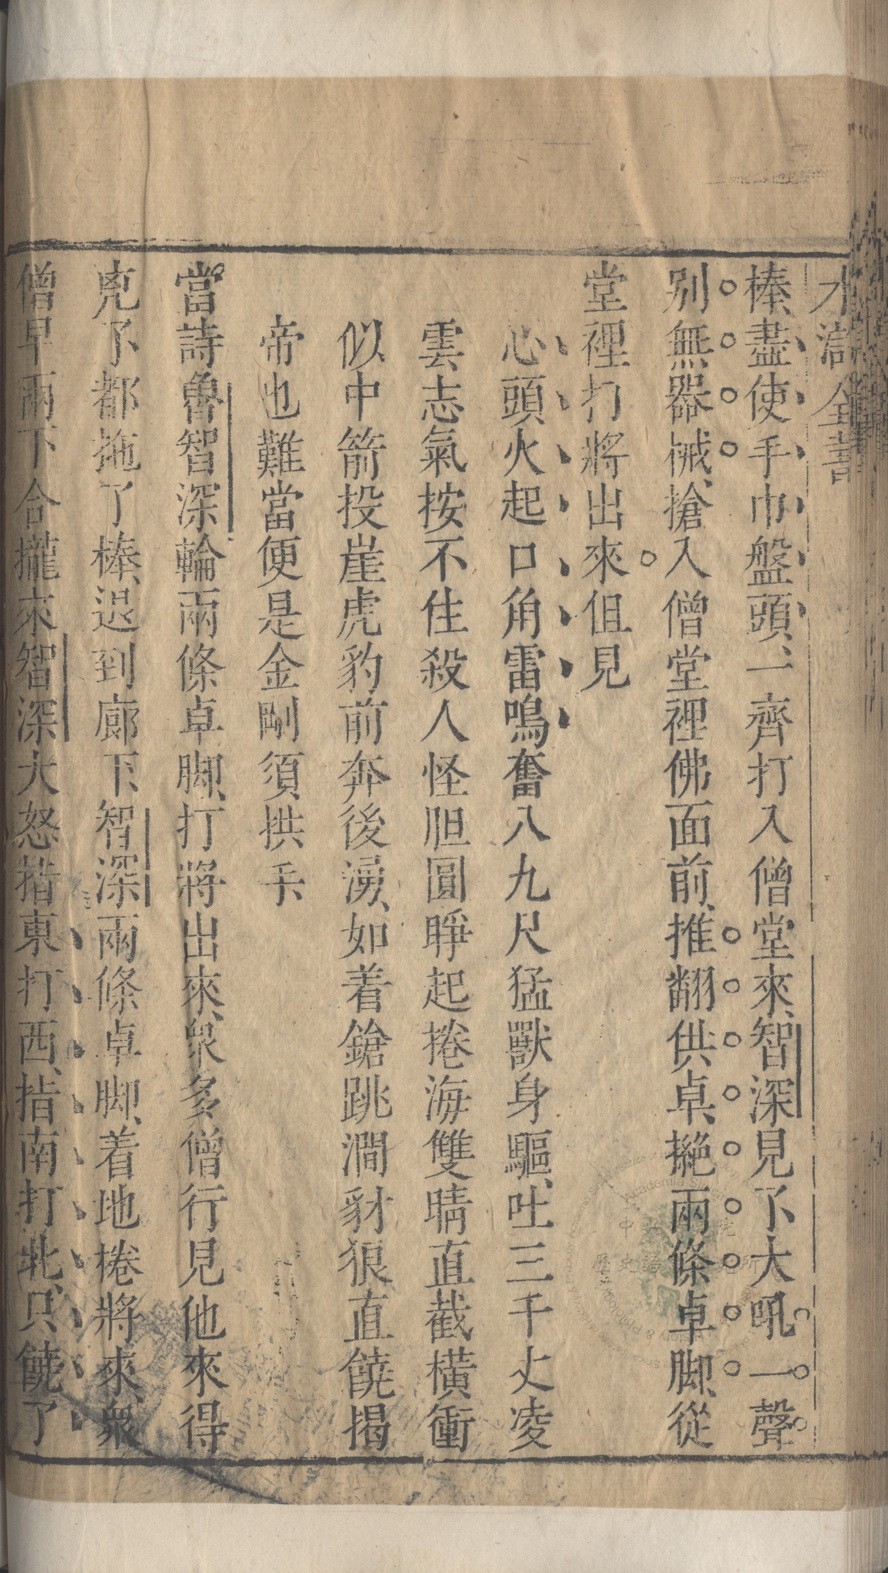 水滸全書
棒、盡使手巾盤頭、一齊打入僧堂來、智深見了大吼一聲
別無器械、搶入僧堂裡佛面前、推翻供卓、撧兩條卓脚、從
堂裡打將出來但見
心頭火起口角雷鳴奮八九尺猛獸身驅、吐三千丈凌
雲志氣按不住殺人怪胆圓睜起捲海雙睛直截橫衝
似中箭投崖虎豹前奔後湧、如着鎗跳澗豺狼直饒揭
帝也難當便是金剛須拱手
當時魯智深輪兩條卓脚、打將出來、衆多僧行見他來得
兇了都拖了棒、退到廊下、智深兩條卓脚、着地捲將來、衆
僧早兩下合攏來智深大怒揩東打西、指南打北、只饒了